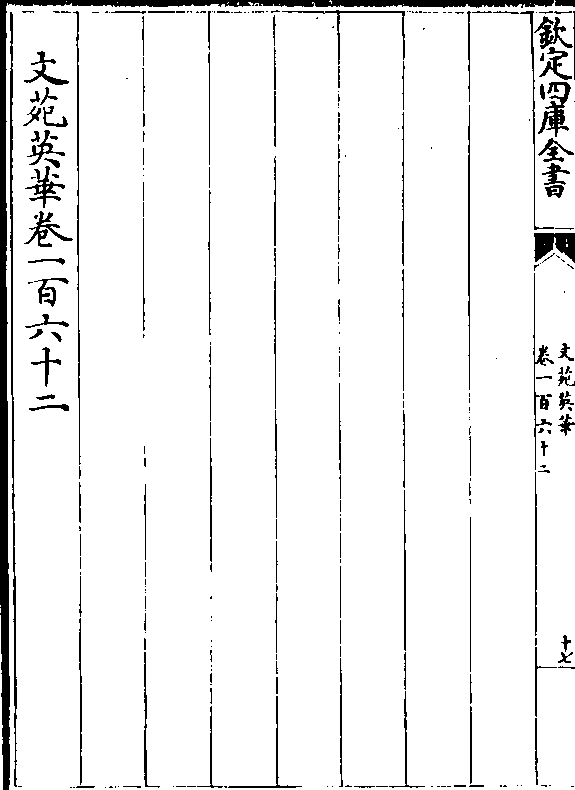 欽定四庫全書
文苑英華
卷一百六十二
十七
文苑英華卷一百六十二